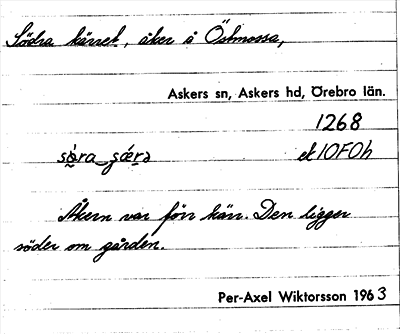 Södra kärret, åker å Östmossa,
Askers sn, Askers hd, Örebro län.
1268
ek 10F0h
Åkern var förr kärr. Den ligger
söder om gården.
Per-Axel Wiktorsson 1963